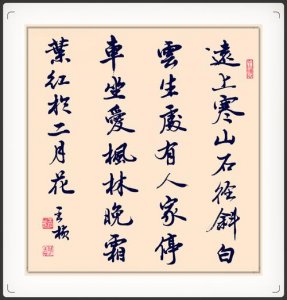 遠上寒山石徑斜白
雲生處有人家停
車坐愛楓林晚霜
葉紅於二月花